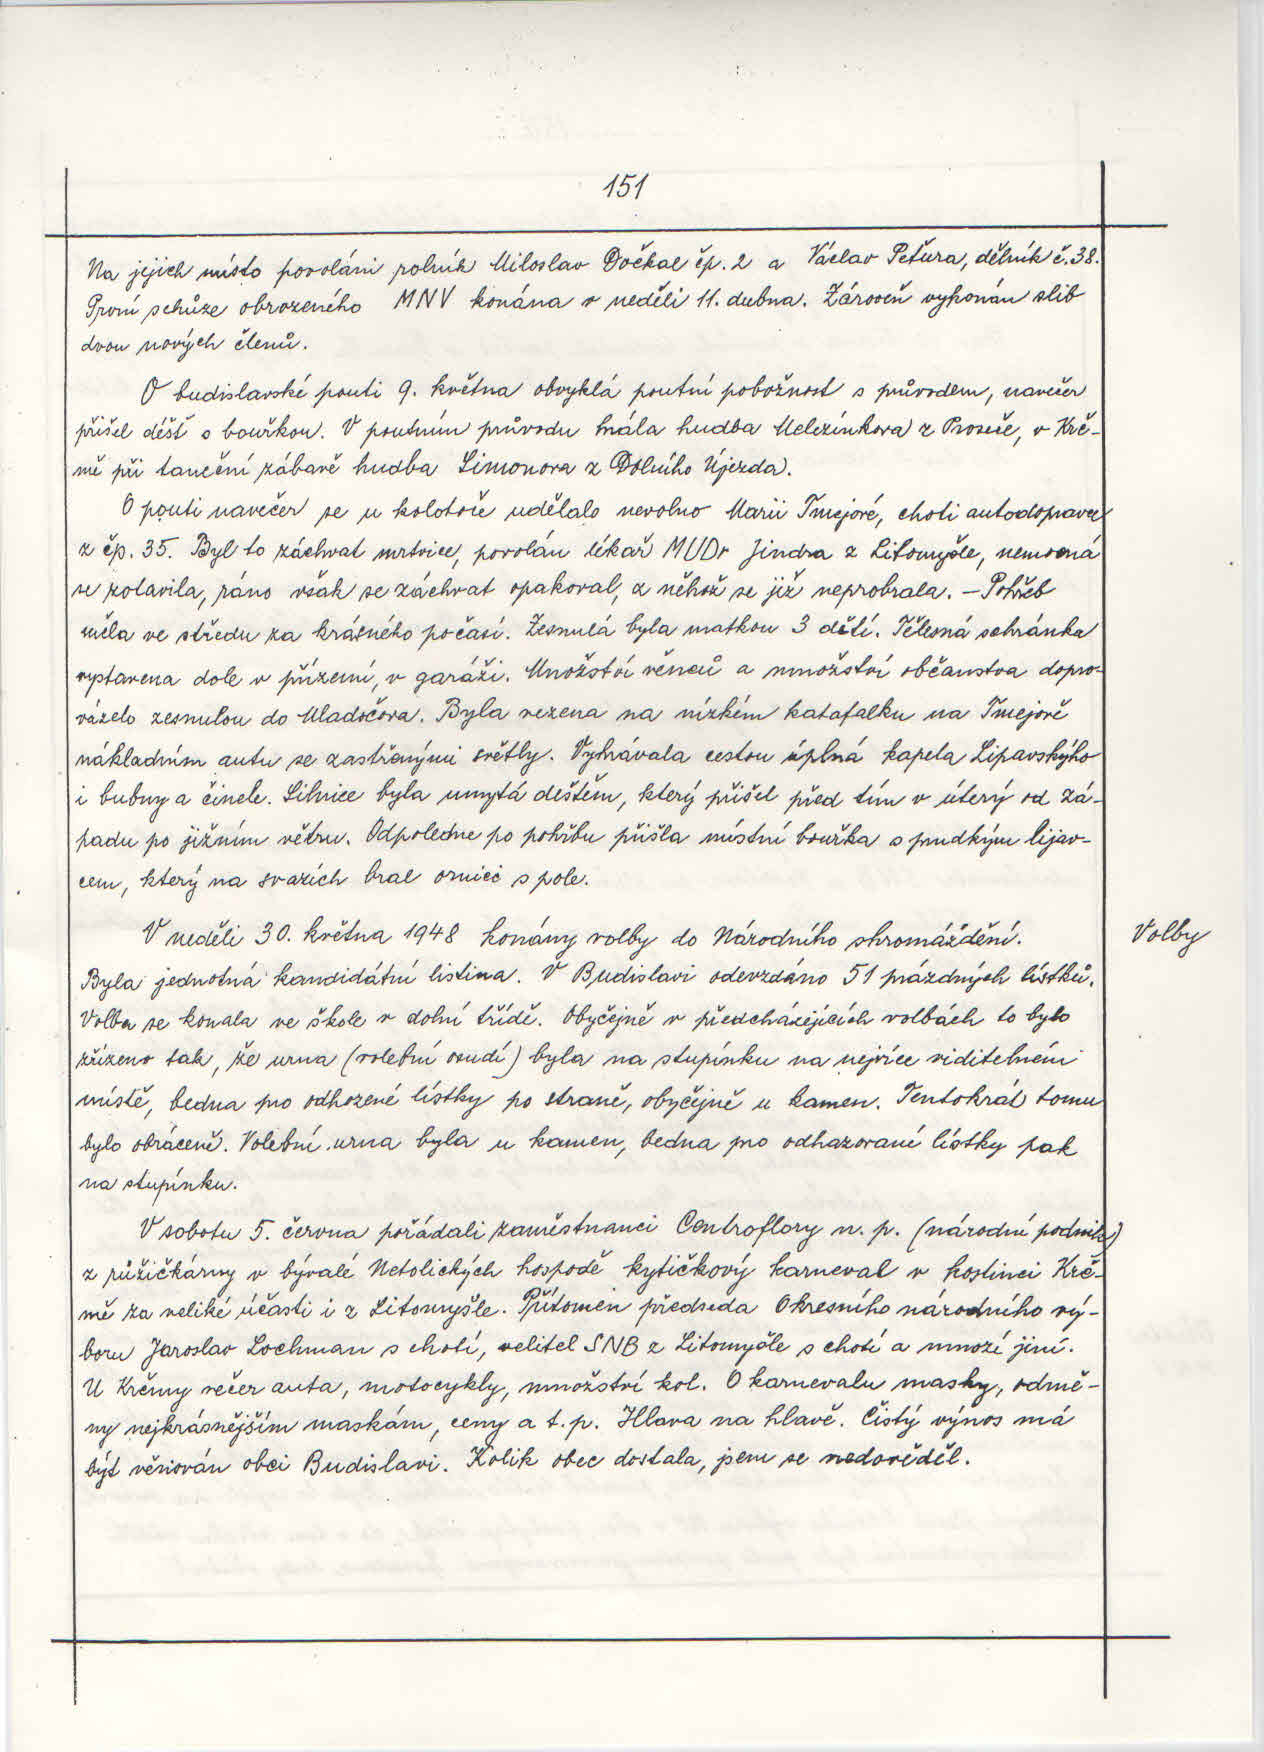 151
Na jejich místo povoláni rolník Miloslav Dočkal čp. 2 a Václav Peťura, dělník č. 38.
První schůze obrozeného MNV konána v neděli 11. dubna. Zároveň vykonán slib
dvou nových členů.
O budislavské pouti 9. května obvyklá poutní pobožnost s průvodem, navečer
přišel déšť s bouřkou. V poutním průvodu hrála hudba Melezínkova z Proseče, v Krč-
mě při taneční zábavě hudba Simonova z Dolního Újezda.
O pouti navečer se u kolotoče udělalo nevolno Marii Tmejové, choti autodopravce
z čp. 35. Byl to záchvat mrtvice, povolán lékař MUDr Jindra z Litomyšle, nemocná
se zotavila, ráno však se záchvat opakoval, z něhož se již neprobrala. — Pohřeb
měla ve středu za krásného počasí. Zesnulá byla matkou 3 dětí. Tělesná schránka
vystavena dole v přízemí, v garáži. Množství věnců a množství občanstva dopro-
vázelo zesnulou do Mladočova. Byla vezena na nízkém katafalku na Tmejově
nákladním autu se zastřenými světly. Vyhrávala cestou úplná kapela Lipavského
i bubny a činele. Silnice byla umytá deštěm, který přišel před tím v úterý od Zá-
padu po jižním větru. Odpoledne po pohřbu přišla místní bouřka s prudkým lijav-
cem, který na svazích bral ornici s pole.
V neděli 30. května 1948 konány volby do Národního shromáždění.
Volby
Byla jednotná kandidátní listina. V Budislavi odevzdáno 51 prázdných lístků.
Volba se konala ve škole v dolní třídě. Obyčejně v předcházejících volbách to bylo
zřízeno tak, že urna (volební osudí) byla na stupínku na nejvíce viditelném
místě, bedna pro odhozené lístky po straně, obyčejně u kamen. Tentokrát tomu
bylo obráceně. Volební urna byla u kamen, bedna pro odhazované lístky pak
na stupínku.
V sobotu 5. června pořádali zaměstnanci Centroflory n. p. (národní podnik)
z růžičkárny v bývalé Netolických hospodě kytičkový karneval v hostinci Krč-
mě za veliké účasti i z Litomyšle. Přítomen předseda Okresního národního vý-
boru Jaroslav Lochman s chotí, velitel SNB z Litomyšle s chotí a mnozí jiní.
U Krčmy večer auta, motocykly, množství kol. O karnevalu masky, odmě-
ny nejkrásnějším maskám, ceny a t. p. Hlava na hlavě. Čistý výnos má
být věnován obci Budislavi. Kolik obec dostala, jsem se nedověděl.